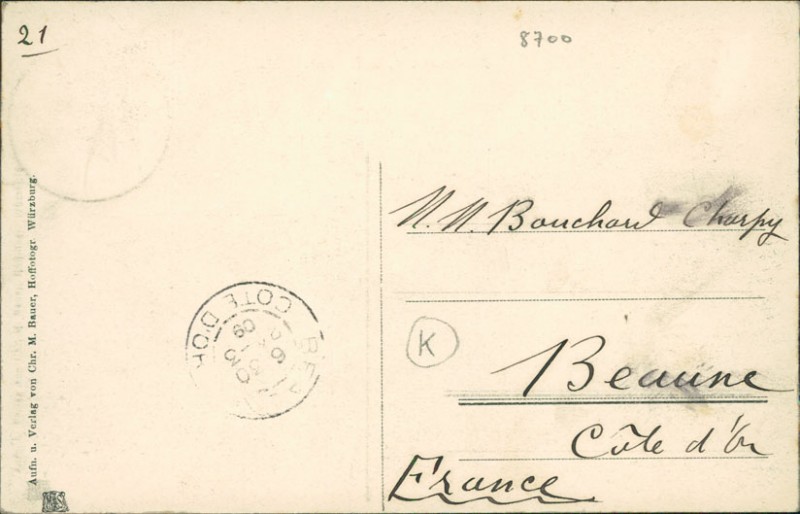 21
8700
Aufn. u. Verlag von Chr. M. Bauer, Hoffotogr. Würzburg.
M. M. Bouchard Charpy
COTE D'OR
K
Beaune
Côte d'Or
France